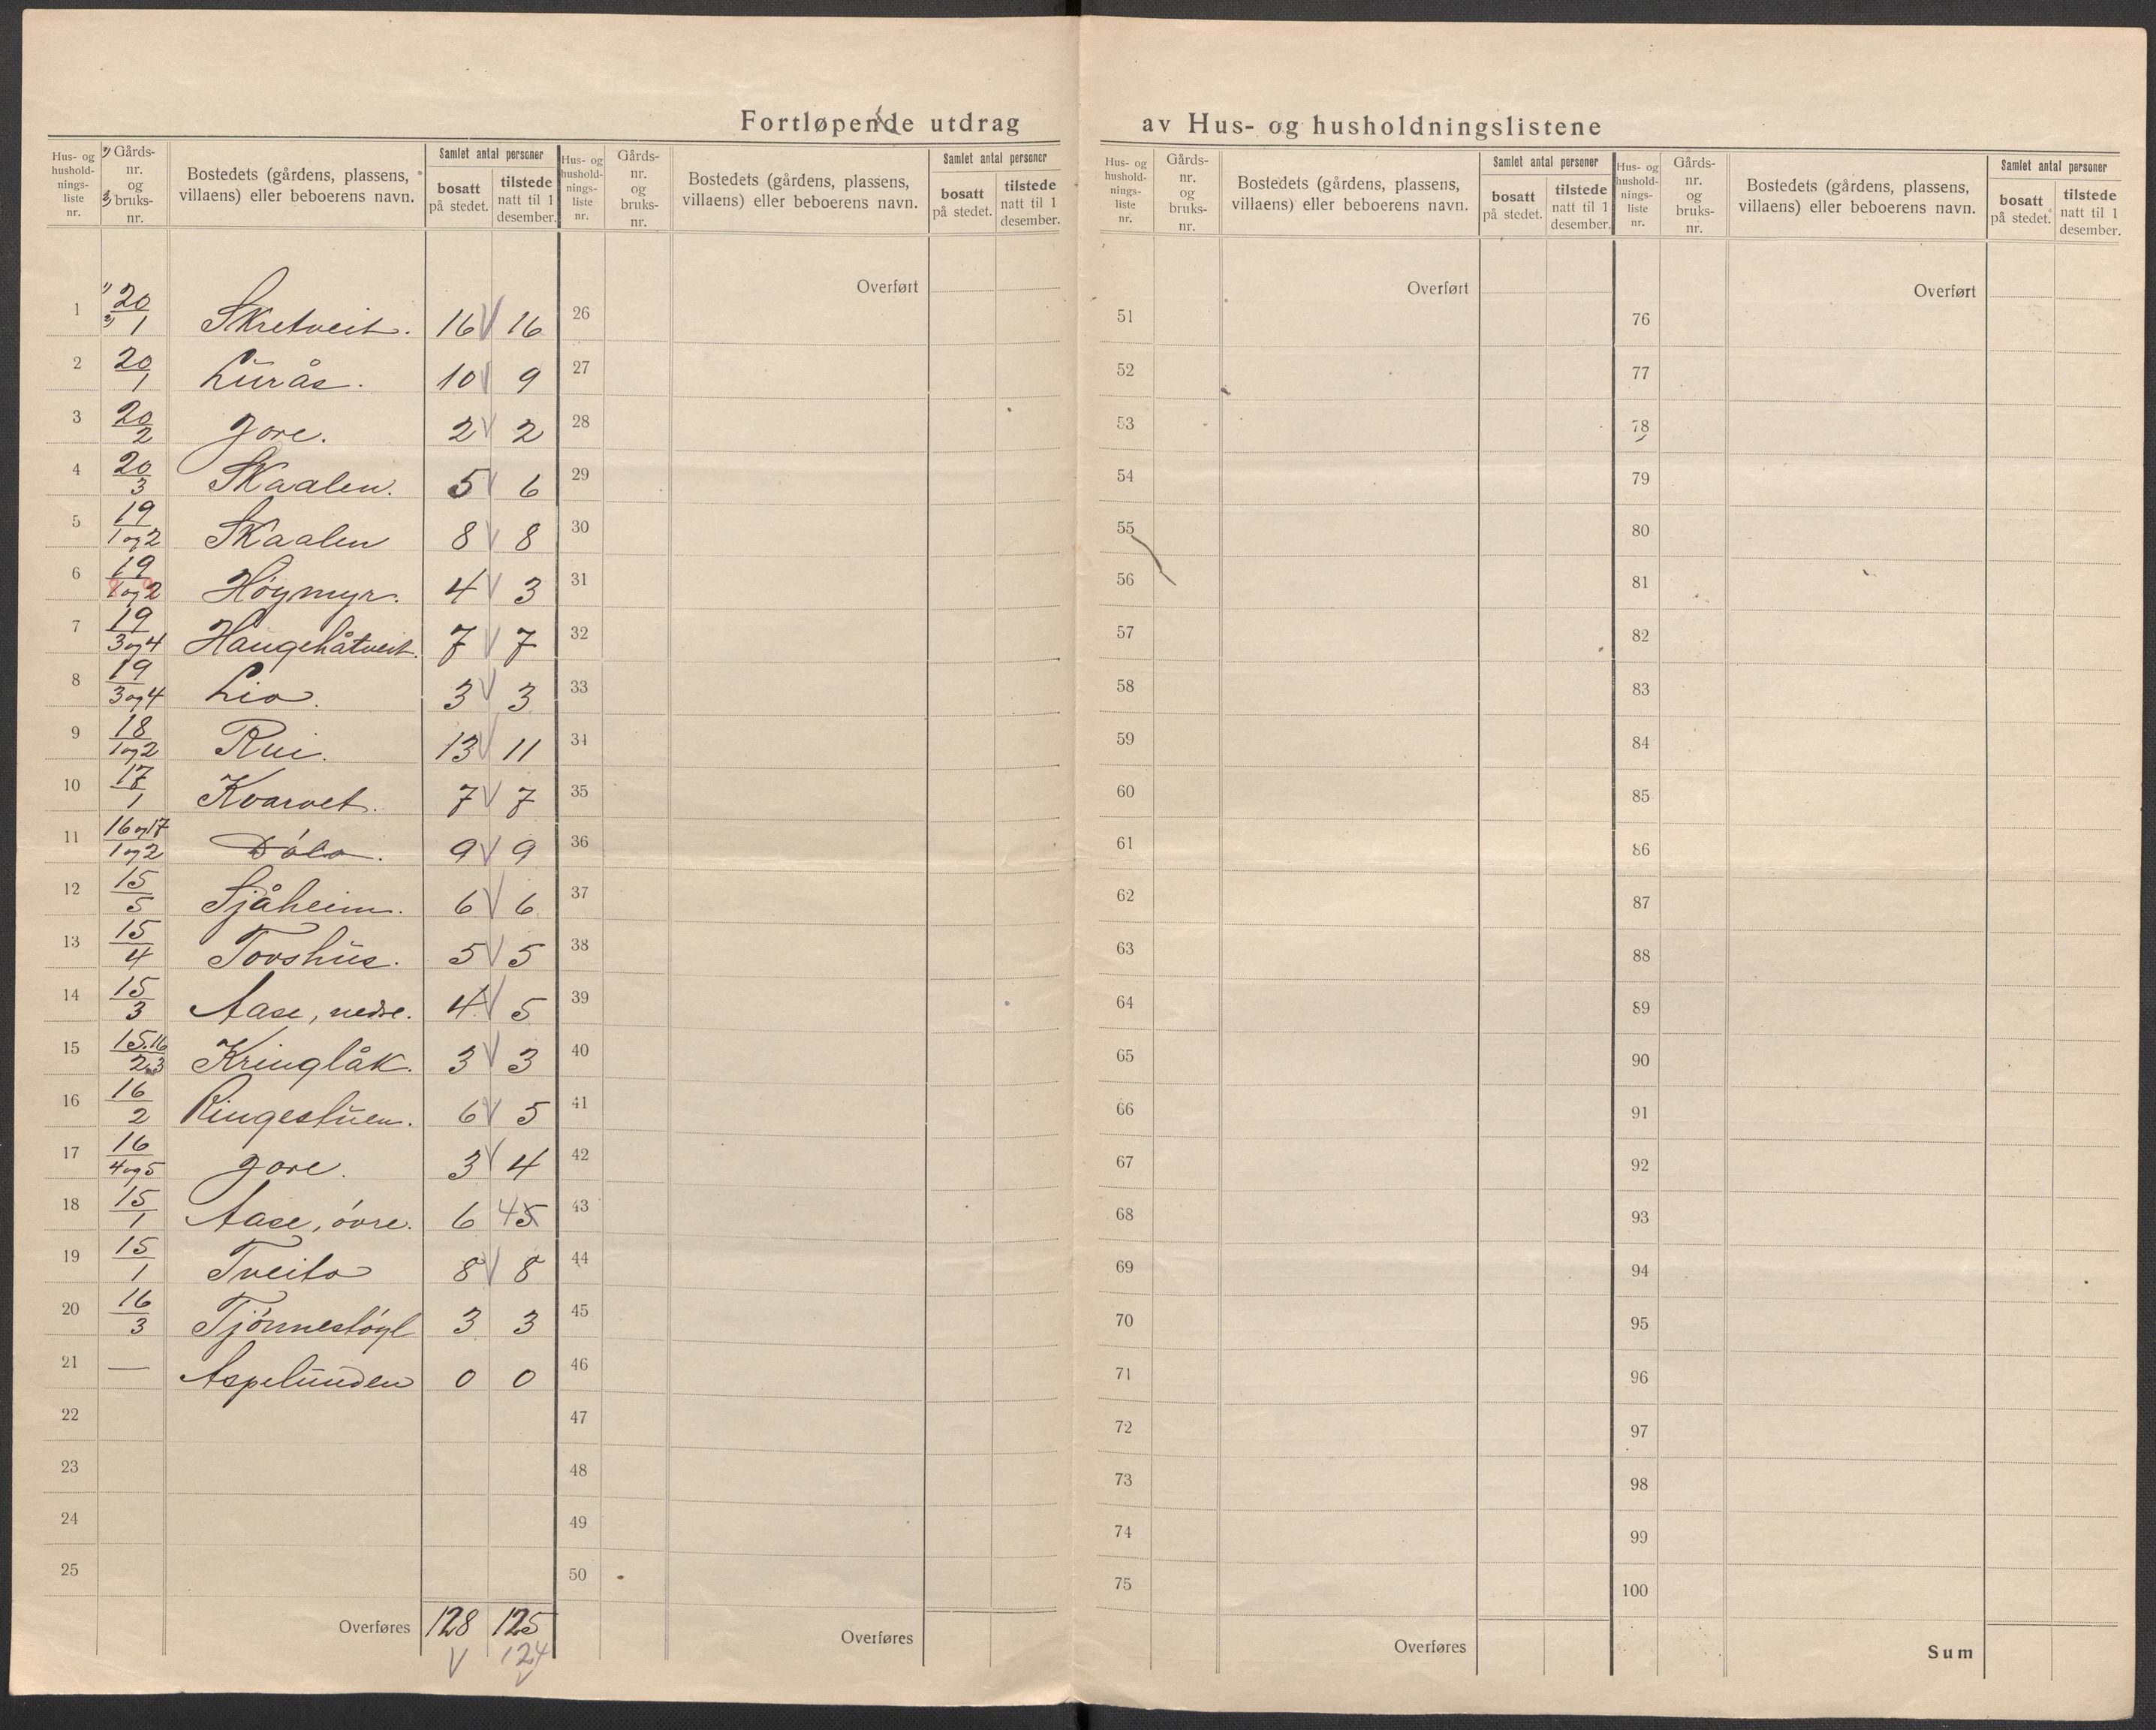 Fortløpende utdrag av Hus- og husholdningslistene
Hus- og husholdnings-liste nr. | 1) Gårds-nr. og 2) bruks-nr. | Bostedets (gårdens, plassens, villaens) eller beboerens navn. | Samlet antal personer | bosatt på stedet. | tilstede natt til 1 desember.
Hus- og hushold-nings-liste nr. | Gårds-nr. og bruks-nr. | Bostedets (gårdens, plassens, villaens) eller beboerens navn. | Samlet antal personer | bosatt på stedet. | tilstede natt til 1 desember.
Hus- og hushold-nings-liste nr. | Gårds-nr. og bruks-nr. | Bostedets (gårdens, plassens, villaens) eller beboerens navn. | Samlet antal personer | bosatt på stedet. | tilstede natt til 1 desember.
Hus- og hushold-nings-liste nr. | Gårds-nr. og bruks-nr. | Bostedets (gårdens, plassens, villaens) eller beboerens navn. | Samlet antal personer | bosatt på stedet. | tilstede natt til 1 desember.
Overført Overført Overført
1 1) 20/2) 1 Skretveit. 16 V 16 26 51 76
2 20/1 Lurås. 10 V 9 27 52 77
3 20/2 gore. 2 V 2 28 53 78
4 20/3 Skaalen. 5 V 6 29 54 79
5 19/1 og 2 Skaalen 8 V 8 30 55 80
6 19/1 og 2 Høymyr. 4 V 3 31 56 81
7 19/3 og 4 Haugehåtveit. 7 V 7 32 57 82
8 19/3 og 4 Lio. 3 V 3 33 58 83
9 18/1 og 2 Rui. 13 V 11 34 59 84
10 17/1 Kvarvet. 7 V 7 35 60 85
11 16 og 17/1 og 2 Dólo. 9 V 9 36 61 86
12 15/5 Sjåheim. 6 V 6 37 62 87
13 15/4 Torshus. 5 V 5 38 63 88
14 15/3 Aase, nedre. 4 V 5 39 64 89
15 15.16/2.3 Kringlåk. 3 V 3 40 65 90
16 16/2 Ringestuen. 6 V 5 41 66 91
17 16/4 og 5 gore. 3 V 4 42 67 92
18 15/1 Aase, óvre. 6 4 5 43 68 93
19 15/1 Tveito 8 V 8 44 69 94
20 16/3 Tjónnestóyl 3 3 45 70 95
21 — Aspelunden 0 0 46 71 96
22 47 72 97
23 48 73 98
24 49 74 99
25 50 75 100
Overføres 128 125 Overføres Overføres Sum
V 124
V